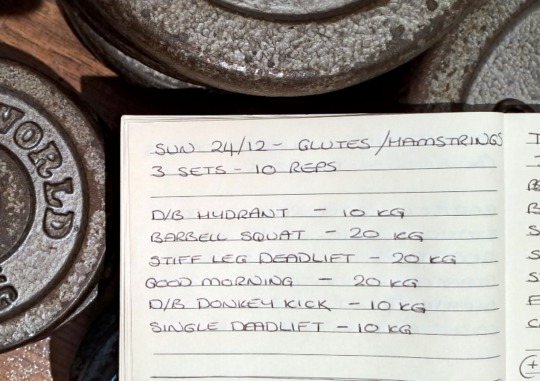 WORLD
SUN 24/12 - GLUTES/HAMSTRINGS
3 SETS - 10 REPS
D/B HYDRANT - 10 KG
BARBELL SQUAT - 20 KG
STIFF LEG DEADLIFT - 20 KG
GOOD MORNING - 20 KG
D/B DONKEY KICK - 10 KG
SINGLE DEADLIFT - 10 KG